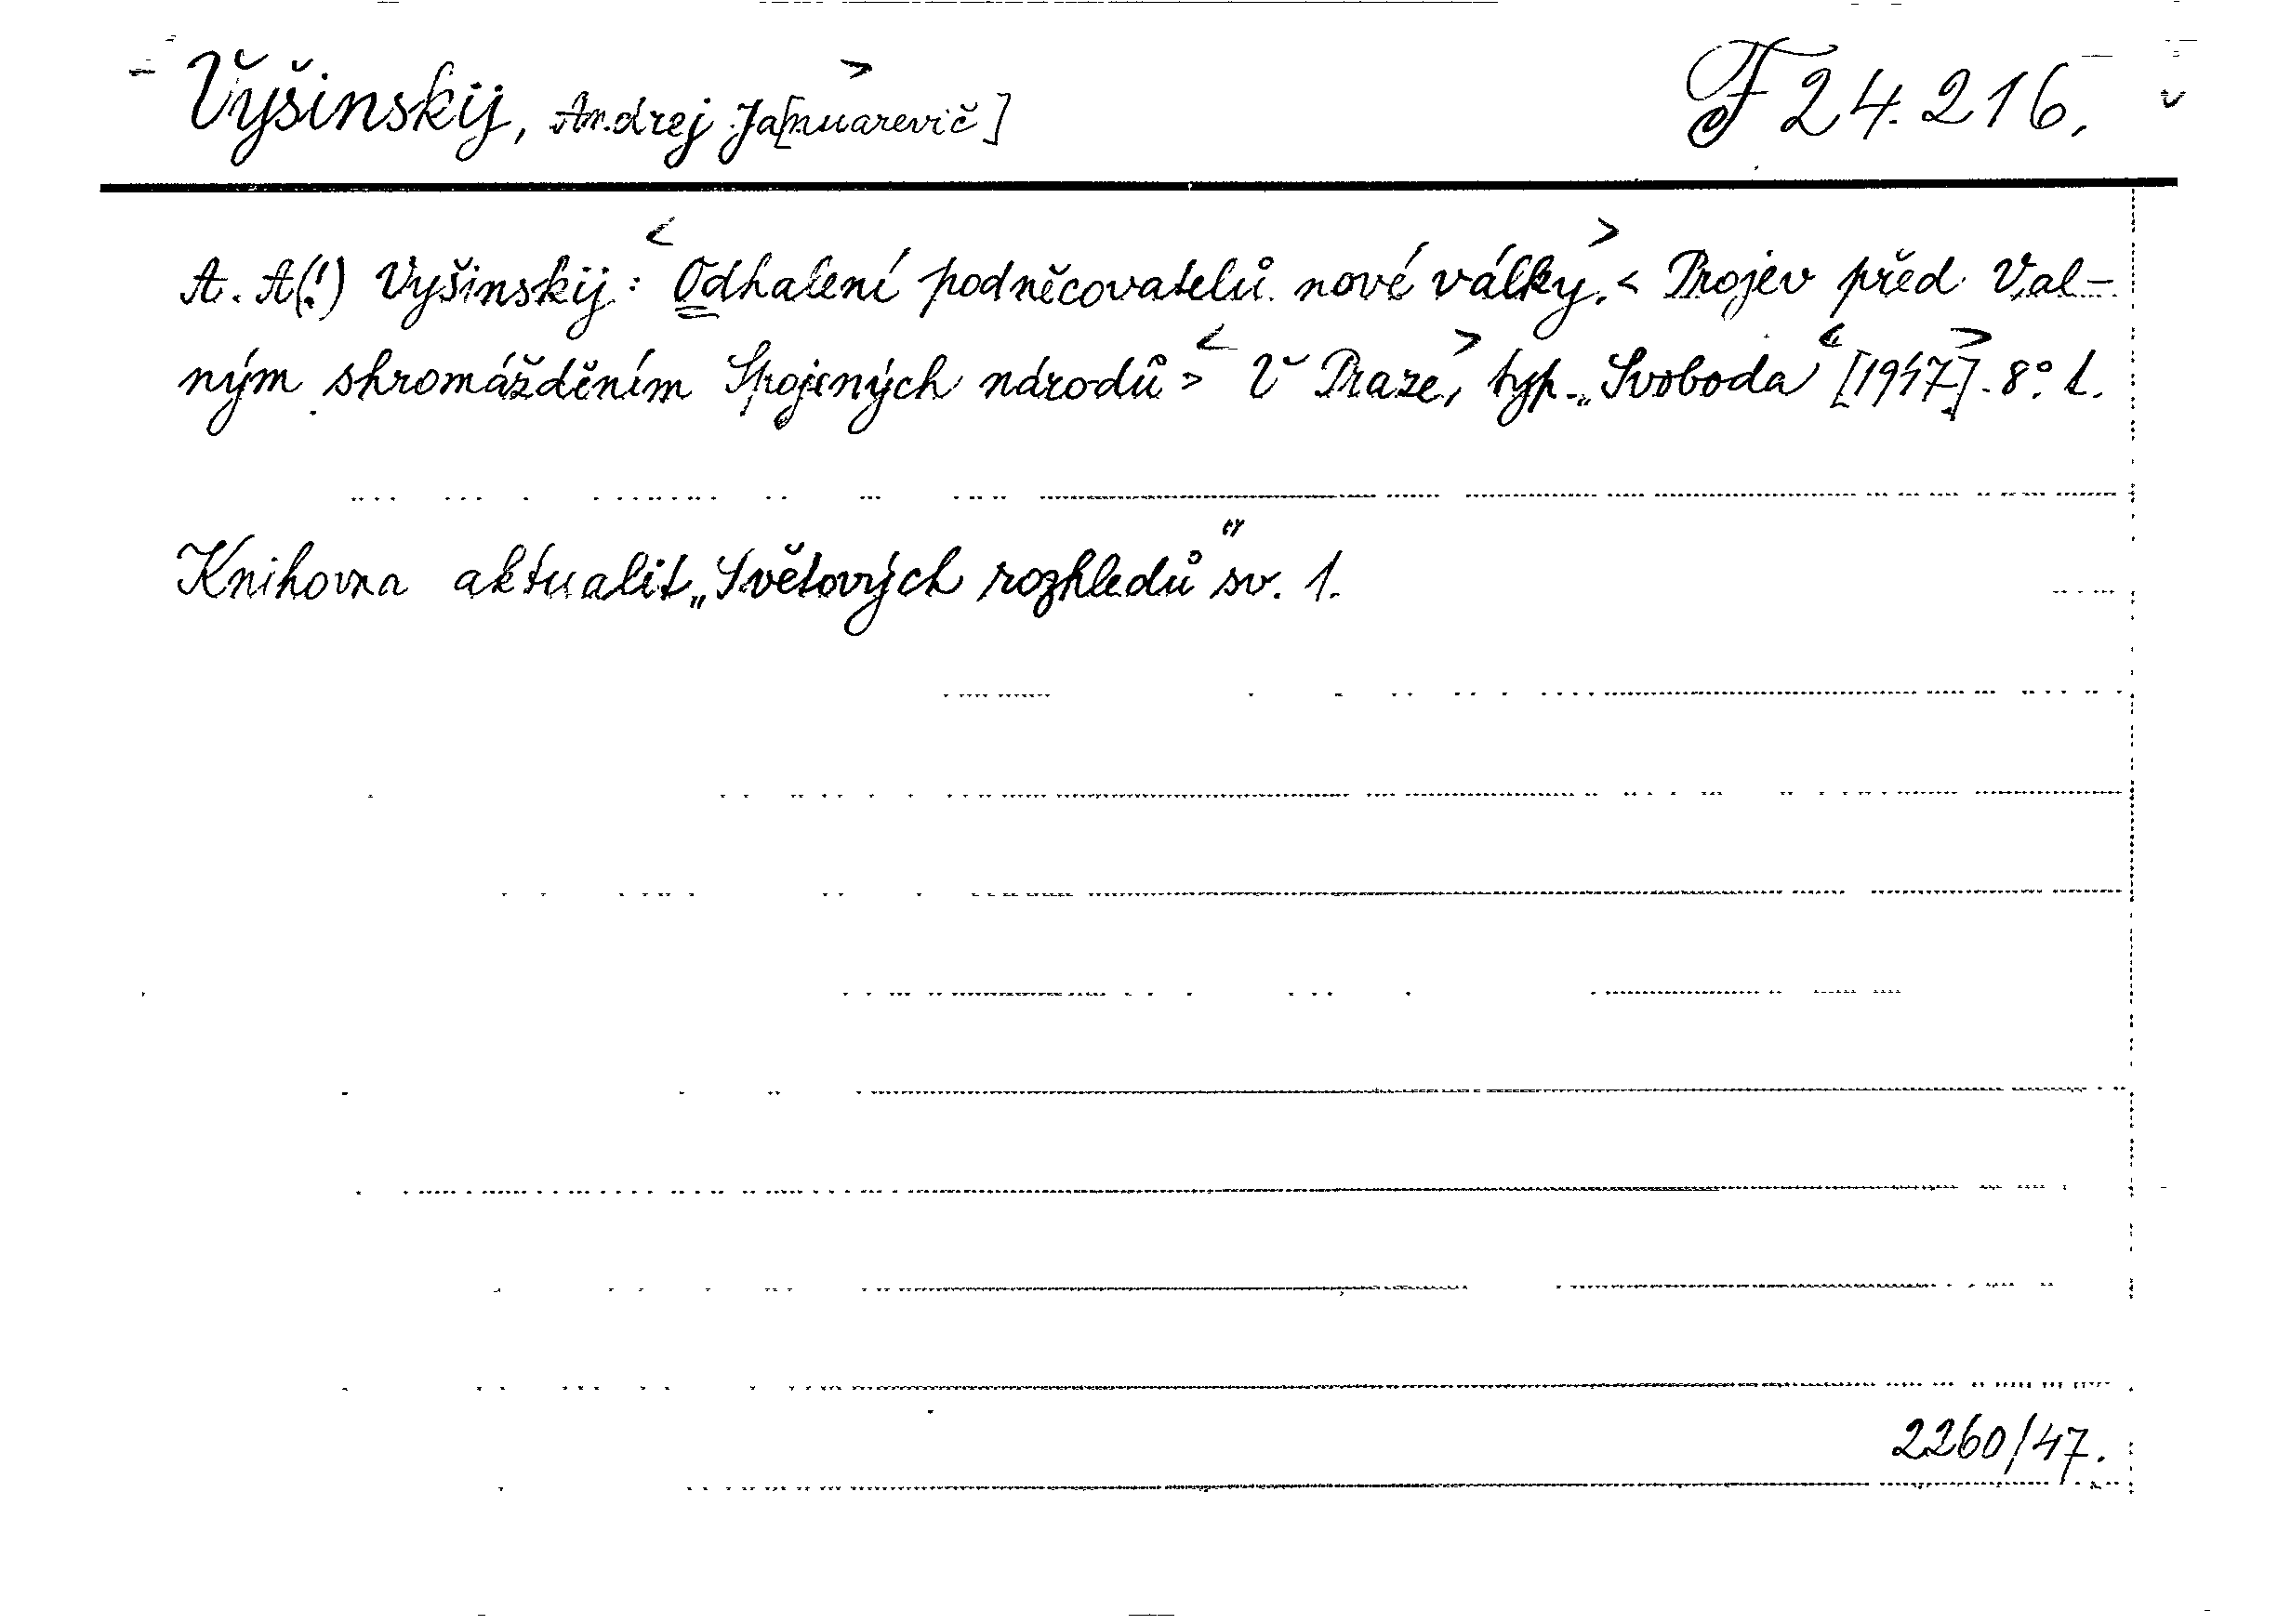 Vyšinskij, Andrej Ja[nuarevič] F 24.216.
A. A(!) Vyšinskij: Odhalení podněcovatelů nové války. < Projev před Val-
ným shromážděním Spojených národů > V Praze, typ. „Svoboda“ [1947]. 8°. 1.
Knihovna aktualit „Světových rozhledů“ sv. 1.
2260/47.